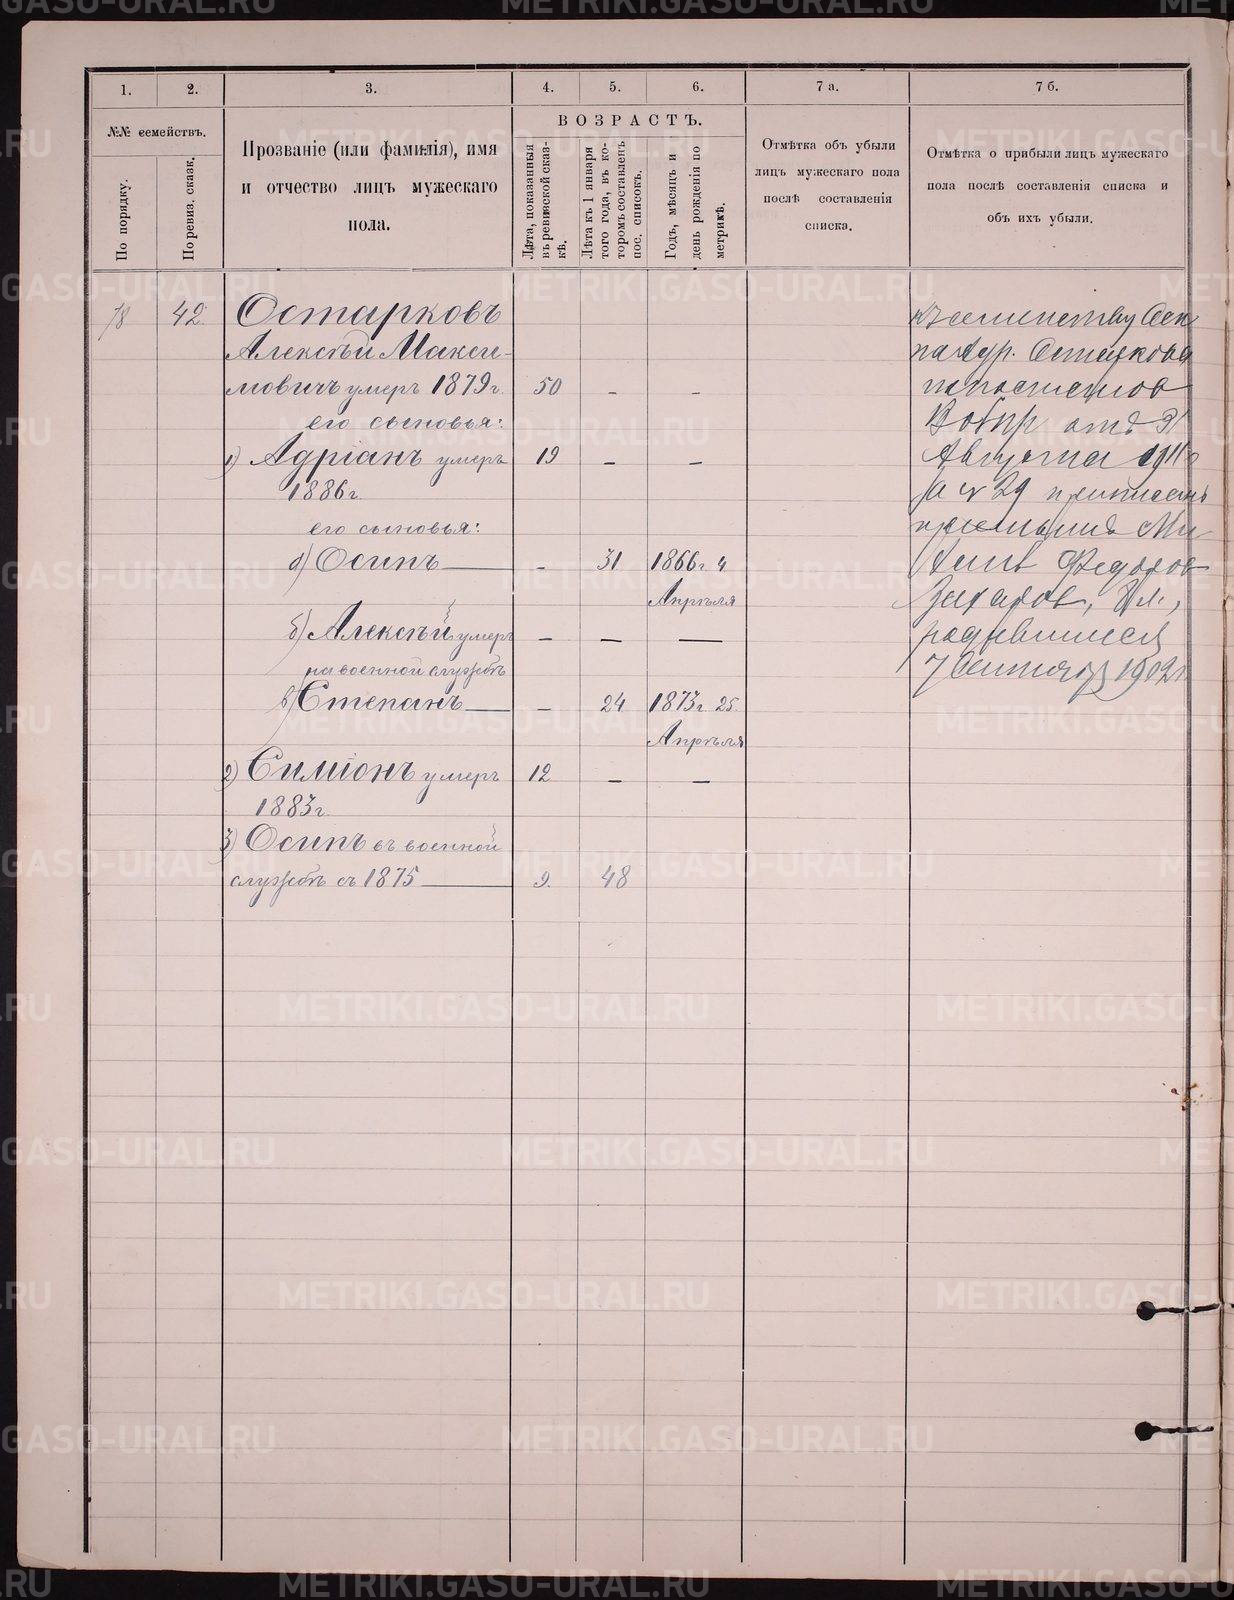 1. 2. 3. 4. 5. 6. 7 а. 7 б.
№№ семействъ.
По порядку.
По ревиз. сказк.
Прозваніе (или фамилія), имя
и отчество лицъ мужескаго
пола.
ВОЗРАСТЪ.
Лѣта, показанныя
въ ревизской сказ-
кѣ.
Лѣта къ 1 января
того года, въ ко-
торомъ составленъ
пос. списокъ.
Годъ, мѣсяцъ и
день рожденія по
метрикѣ.
Отмѣтка объ убыли
лицъ мужескаго пола
послѣ составленія
списка.
Отмѣтка о прибыли лицъ мужескаго
пола послѣ составленія списка и
объ ихъ убыли.
78 42 Остарковъ
Алексѣй Макси-
мовичъ умеръ 1879 г. 50 - -
его сыновья:
1) Адріанъ умеръ 19 - -
1886 г.
его сыновья:
а) Осипъ - 31 1866 г. 4
Апрѣля
б) Алексѣй умеръ - - -
на военной службѣ
в) Степанъ - 24 1873 г. 25
Апрѣля
2) Симіонъ умеръ 12 - -
1883 г.
3) Осипъ въ военной
службѣ съ 1875 9. 48
къ семейству
Остаркова
отъ 31
Августа 1911 г.
за № 29
Федоров
Захаров,
родившийся
7 Сентября 1902 г.
METRIKI.GASO-URAL.RU